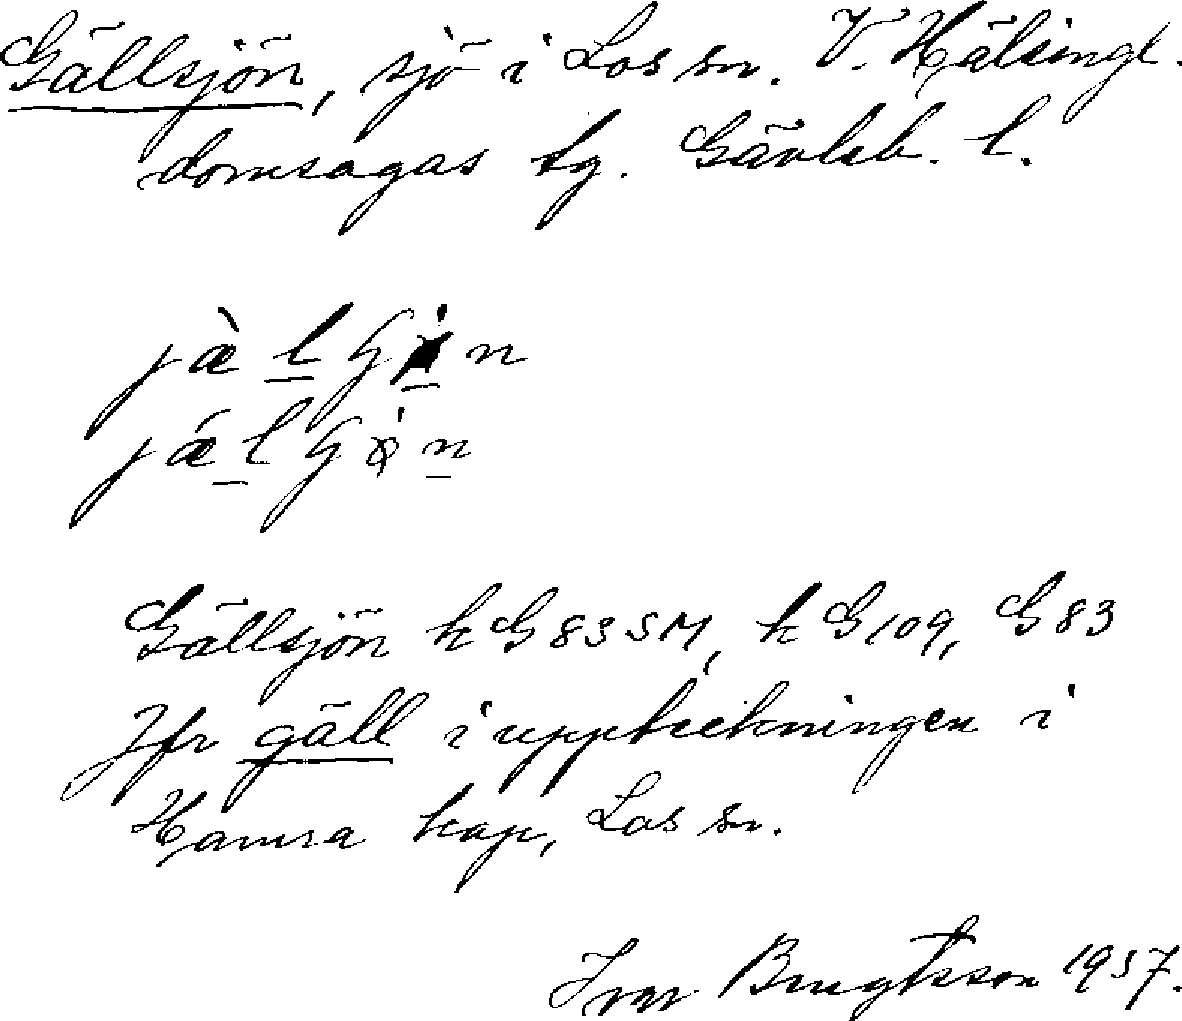 Gällsjön, sjö i Los sn. V. Hälsingl.
domsagas tg. Gävleb. l.
Gällsjön k G 83 SM, k G 109, G 83
Jfr gäll i uppteckningen i
Hamra kap, Los sn.
Ivar Bengtsson 1937.